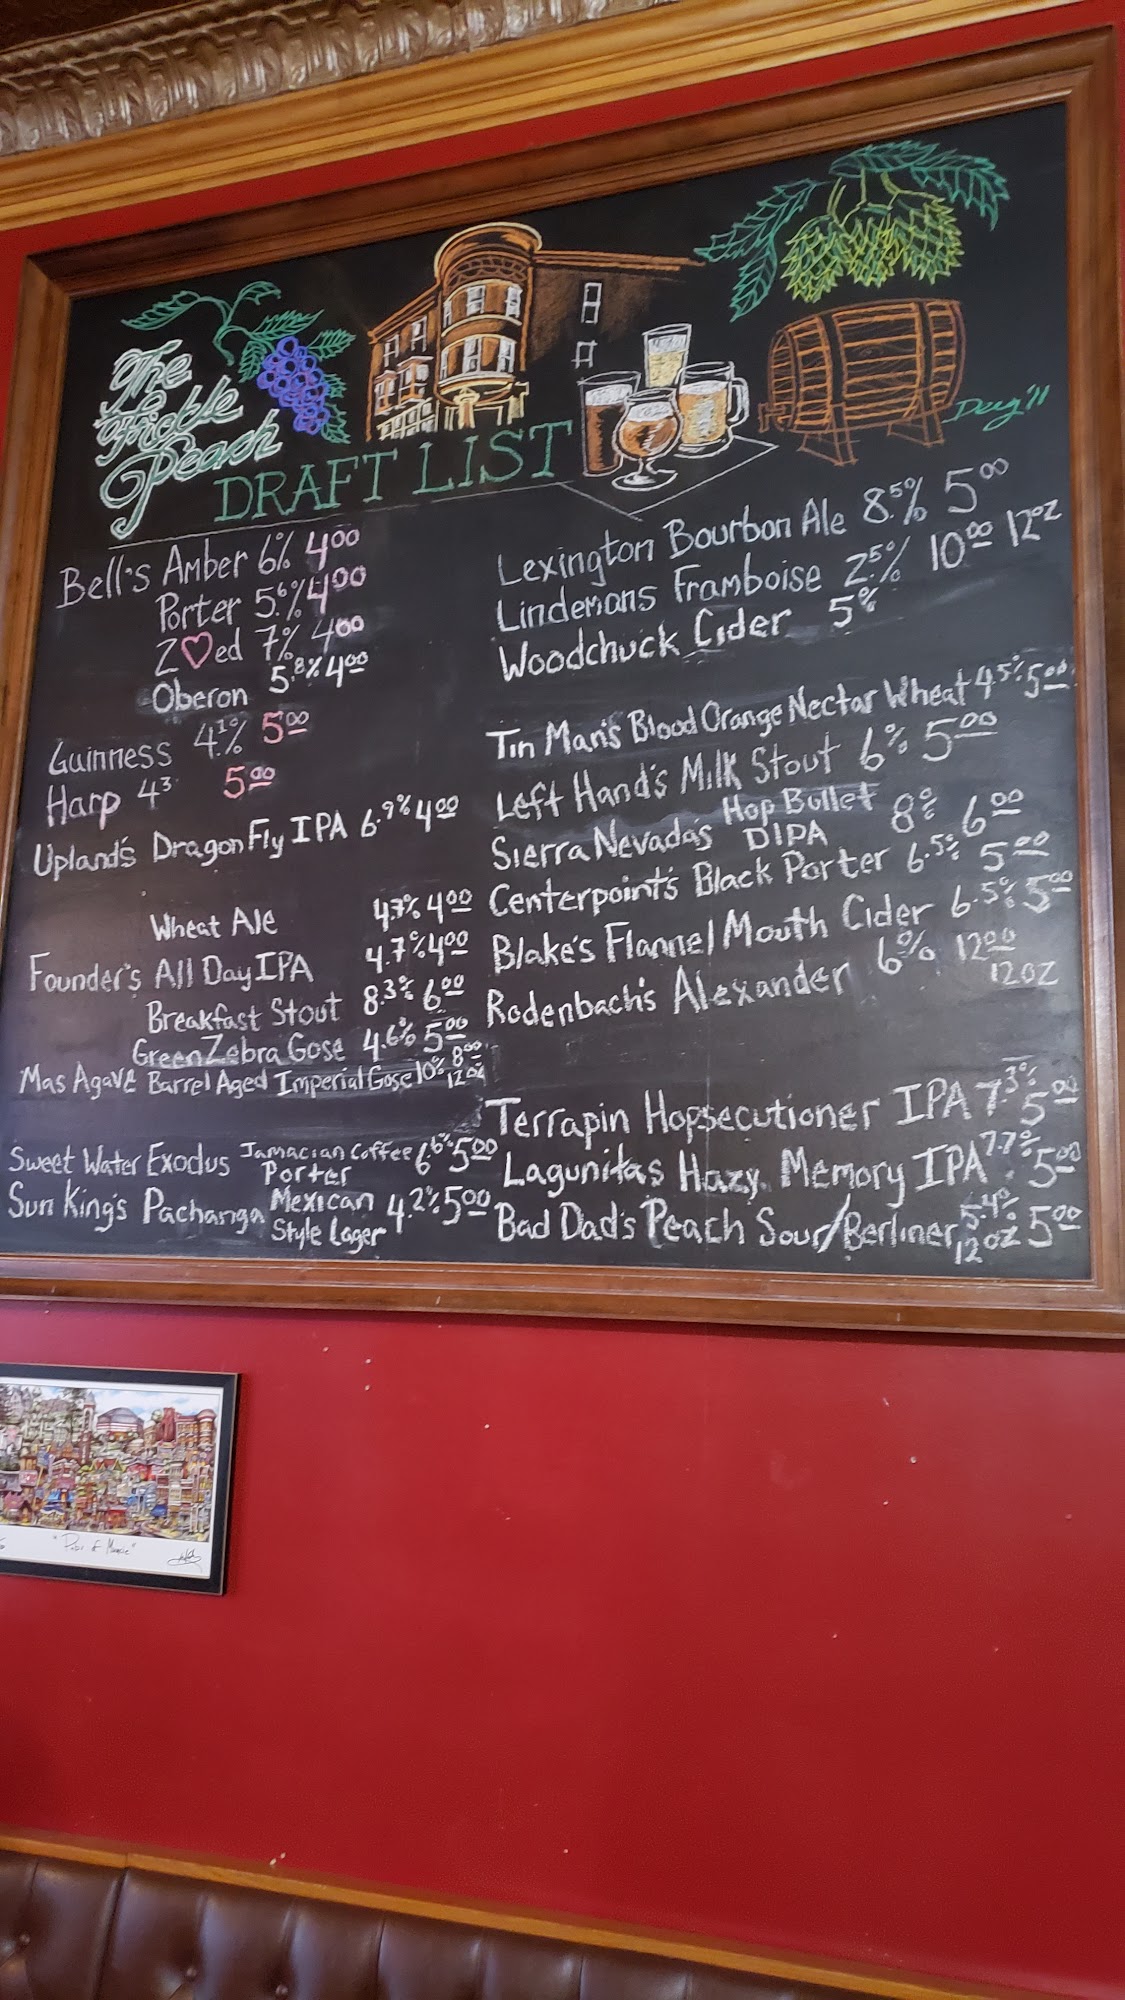 The
Fickle
Peach
DRAFT LIST
Doug '11
Bell's Amber 6% 4.00
Porter 5.6% 4.00
2♡ed 7% 4.00
Oberon 5.8% 4.00
Guinness 4.1% 5.00
Harp 4.3 5.00
Upland's DragonFly IPA 6.9% 4.00
Wheat Ale 4.7% 4.00
Founder's All Day IPA 4.7% 4.00
Breakfast Stout 8.3% 6.00
Green Zebra Gose 4.6% 5.00
Mas Agave Barrel Aged Imperial Gose 10% 8.00
12oz
Sweet Water Exodus Jamacian Coffee 6.6% 5.00
Porter
Sun King's Pachanga Mexican 4.2% 5.00
Style Lager
Lexington Bourbon Ale 8.5% 5.00
Lindemans Framboise 2.5% 10.00 12oz
Woodchuck Cider 5%
Tin Man's Blood Orange Nectar Wheat 4.5% 5.00
Left Hand's Milk Stout 6% 5.00
Sierra Nevada's Hop Bullet 8% 6.00
DIPA
Centerpoint's Black Porter 6.5% 5.00
Blake's Flannel Mouth Cider 6.5% 5.00
Rodenbach's Alexander 6% 12.00
12oz
Terrapin Hopsecutioner IPA 7.3% 5.00
Lagunitas Hazy Memory IPA 7.7% 5.00
Bad Dad's Peach Sour/Berliner 5.4% 5.00
12oz